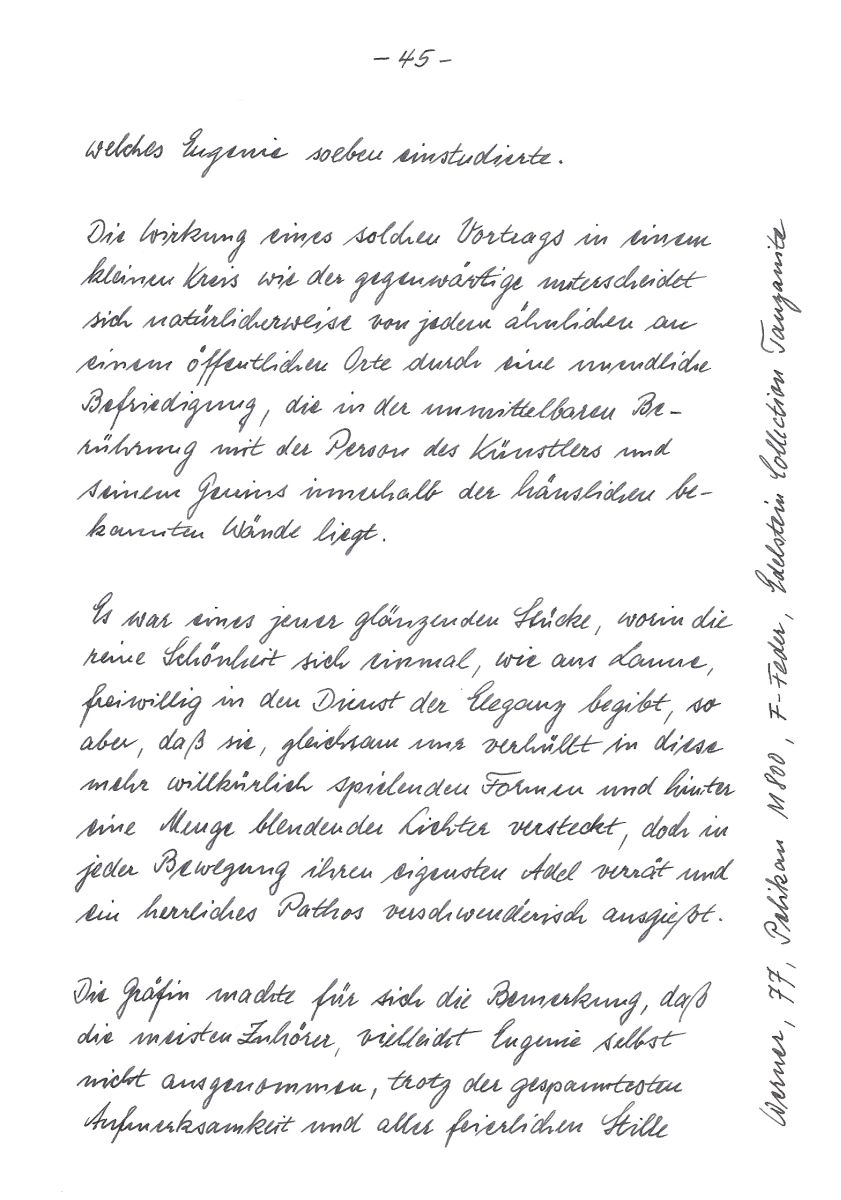 – 45 –
welches Eugenie soeben einstudierte.
Die Wirkung eines solchen Vortrags in einem
kleinen Kreis wie der gegenwärtige unterscheidet
sich natürlicherweise von jedem ähnlichen an
einem öffentlichen Orte durch eine unendliche
Befriedigung, die in der unmittelbaren Be-
rührung mit der Person des Künstlers und
seinem Genius innerhalb der häuslichen be-
kannten Wände liegt.
Es war eines jener glänzenden Stücke, worin die
reine Schönheit sich einmal, wie aus Laune,
freiwillig in den Dienst der Eleganz begibt, so
aber, daß sie, gleichsam nur verhüllt in diese
mehr willkürlich spielenden Formen und hinter
eine Menge blendender Lichter versteckt, doch in
jeder Bewegung ihren eigensten Adel verrät und
ein herrliches Pathos verschwenderisch ausgießt.
Die Gräfin machte für sich die Bemerkung, daß
die meisten Zuhörer, vielleicht Eugenie selbst
nicht ausgenommen, trotz der gespanntesten
Aufmerksamkeit und aller feierlichen Stille
Werner, 77, Pelikan M800, F-Feder, Edelstein Collection Tanzanite